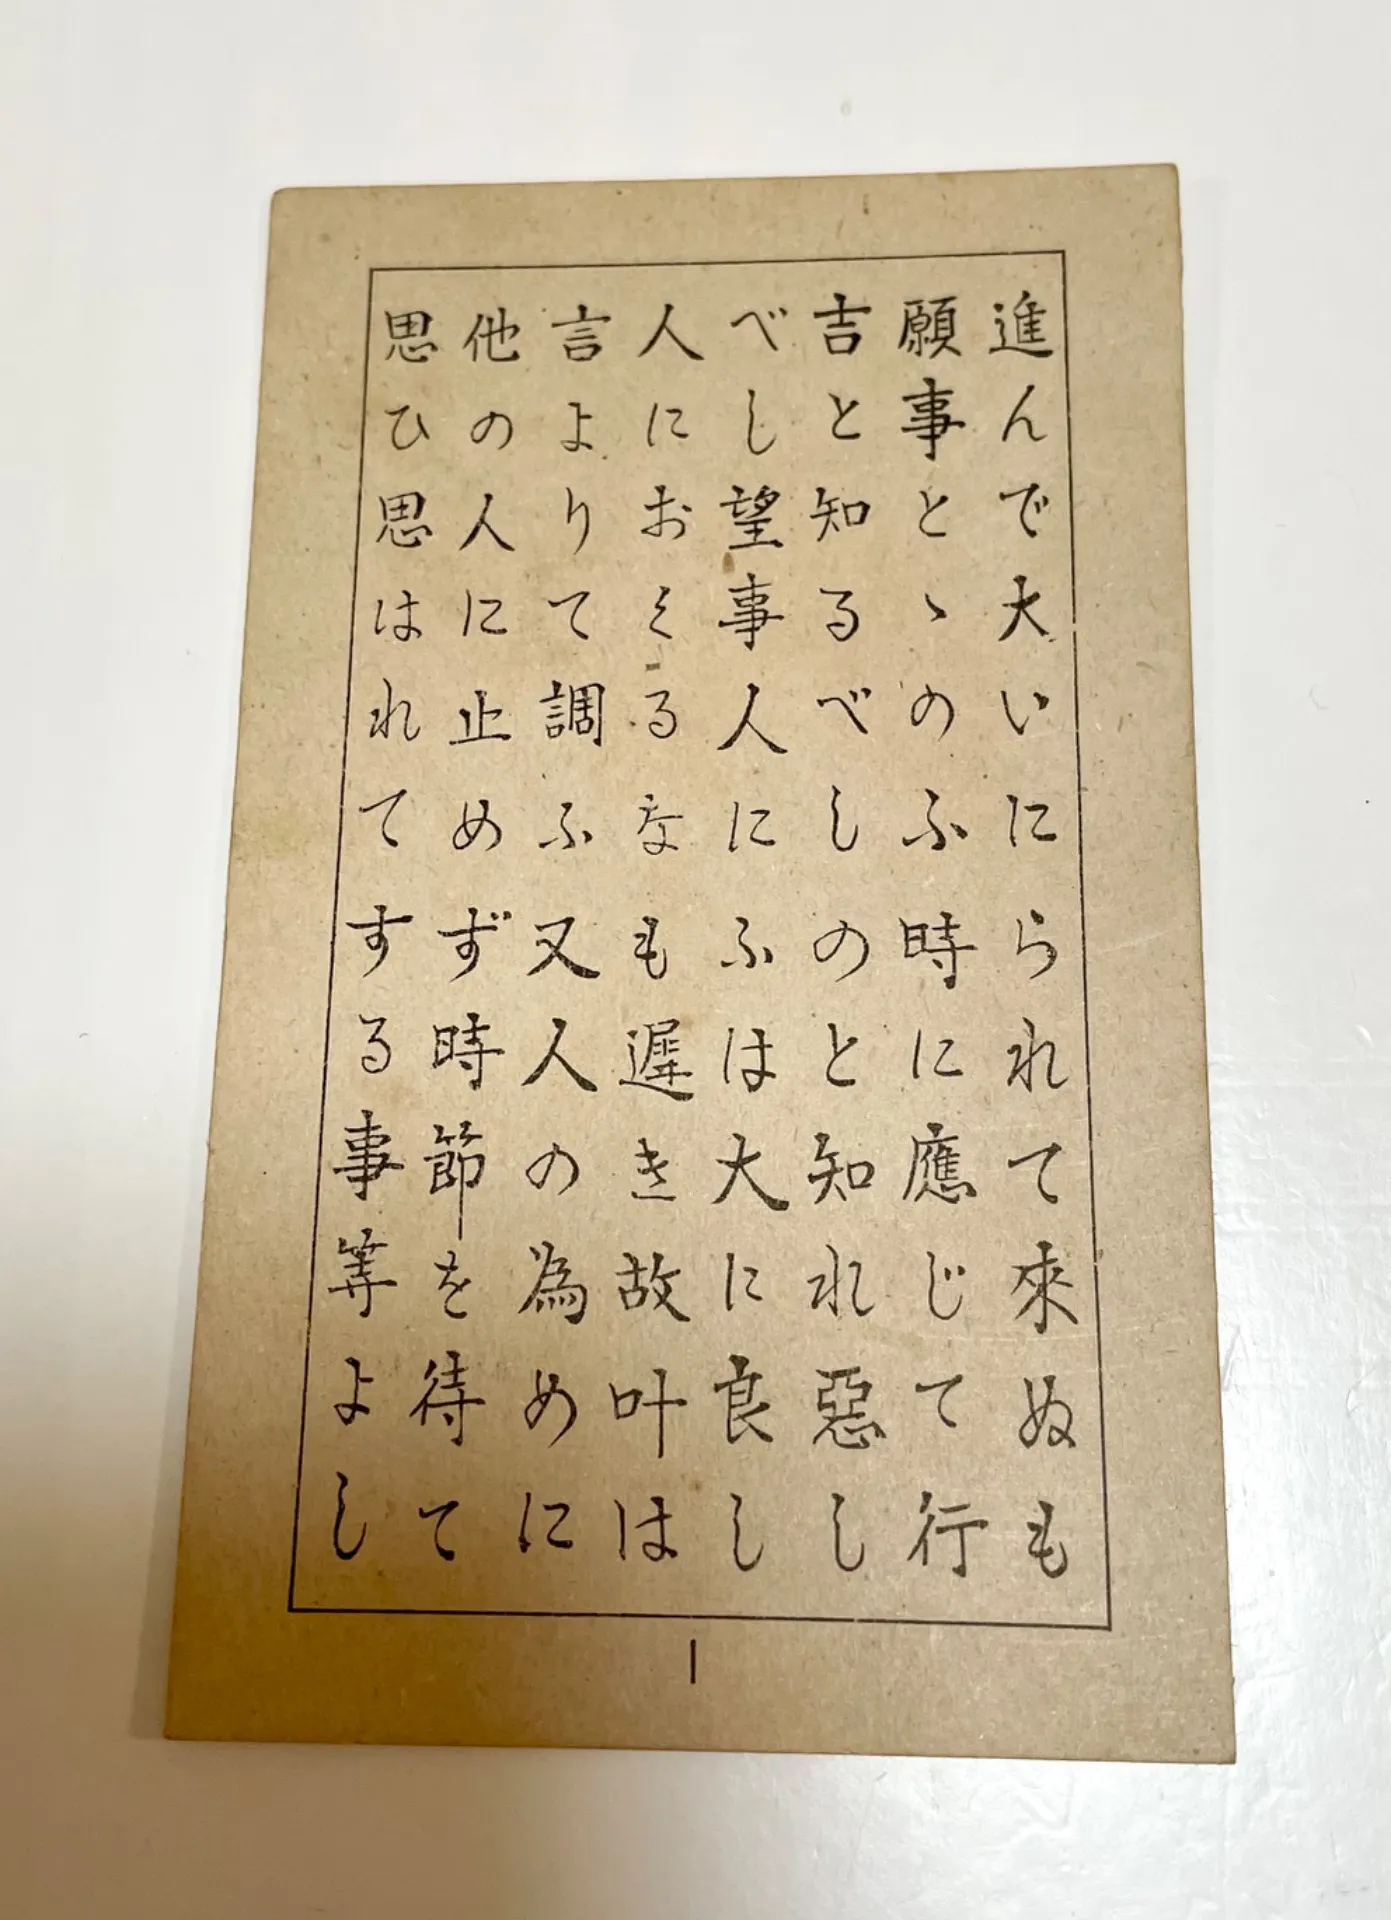 進んで大いにられて來ぬも
願事とゝのふ時に應じて行
吉と知るべしのと知れ惡し
べし望事人にふは大に良し
人におそるなも遲き故叶は
言よりて調ふ又人の為めに
他の人に止めず時節を待て
思ひ思はれてする事等よし
1